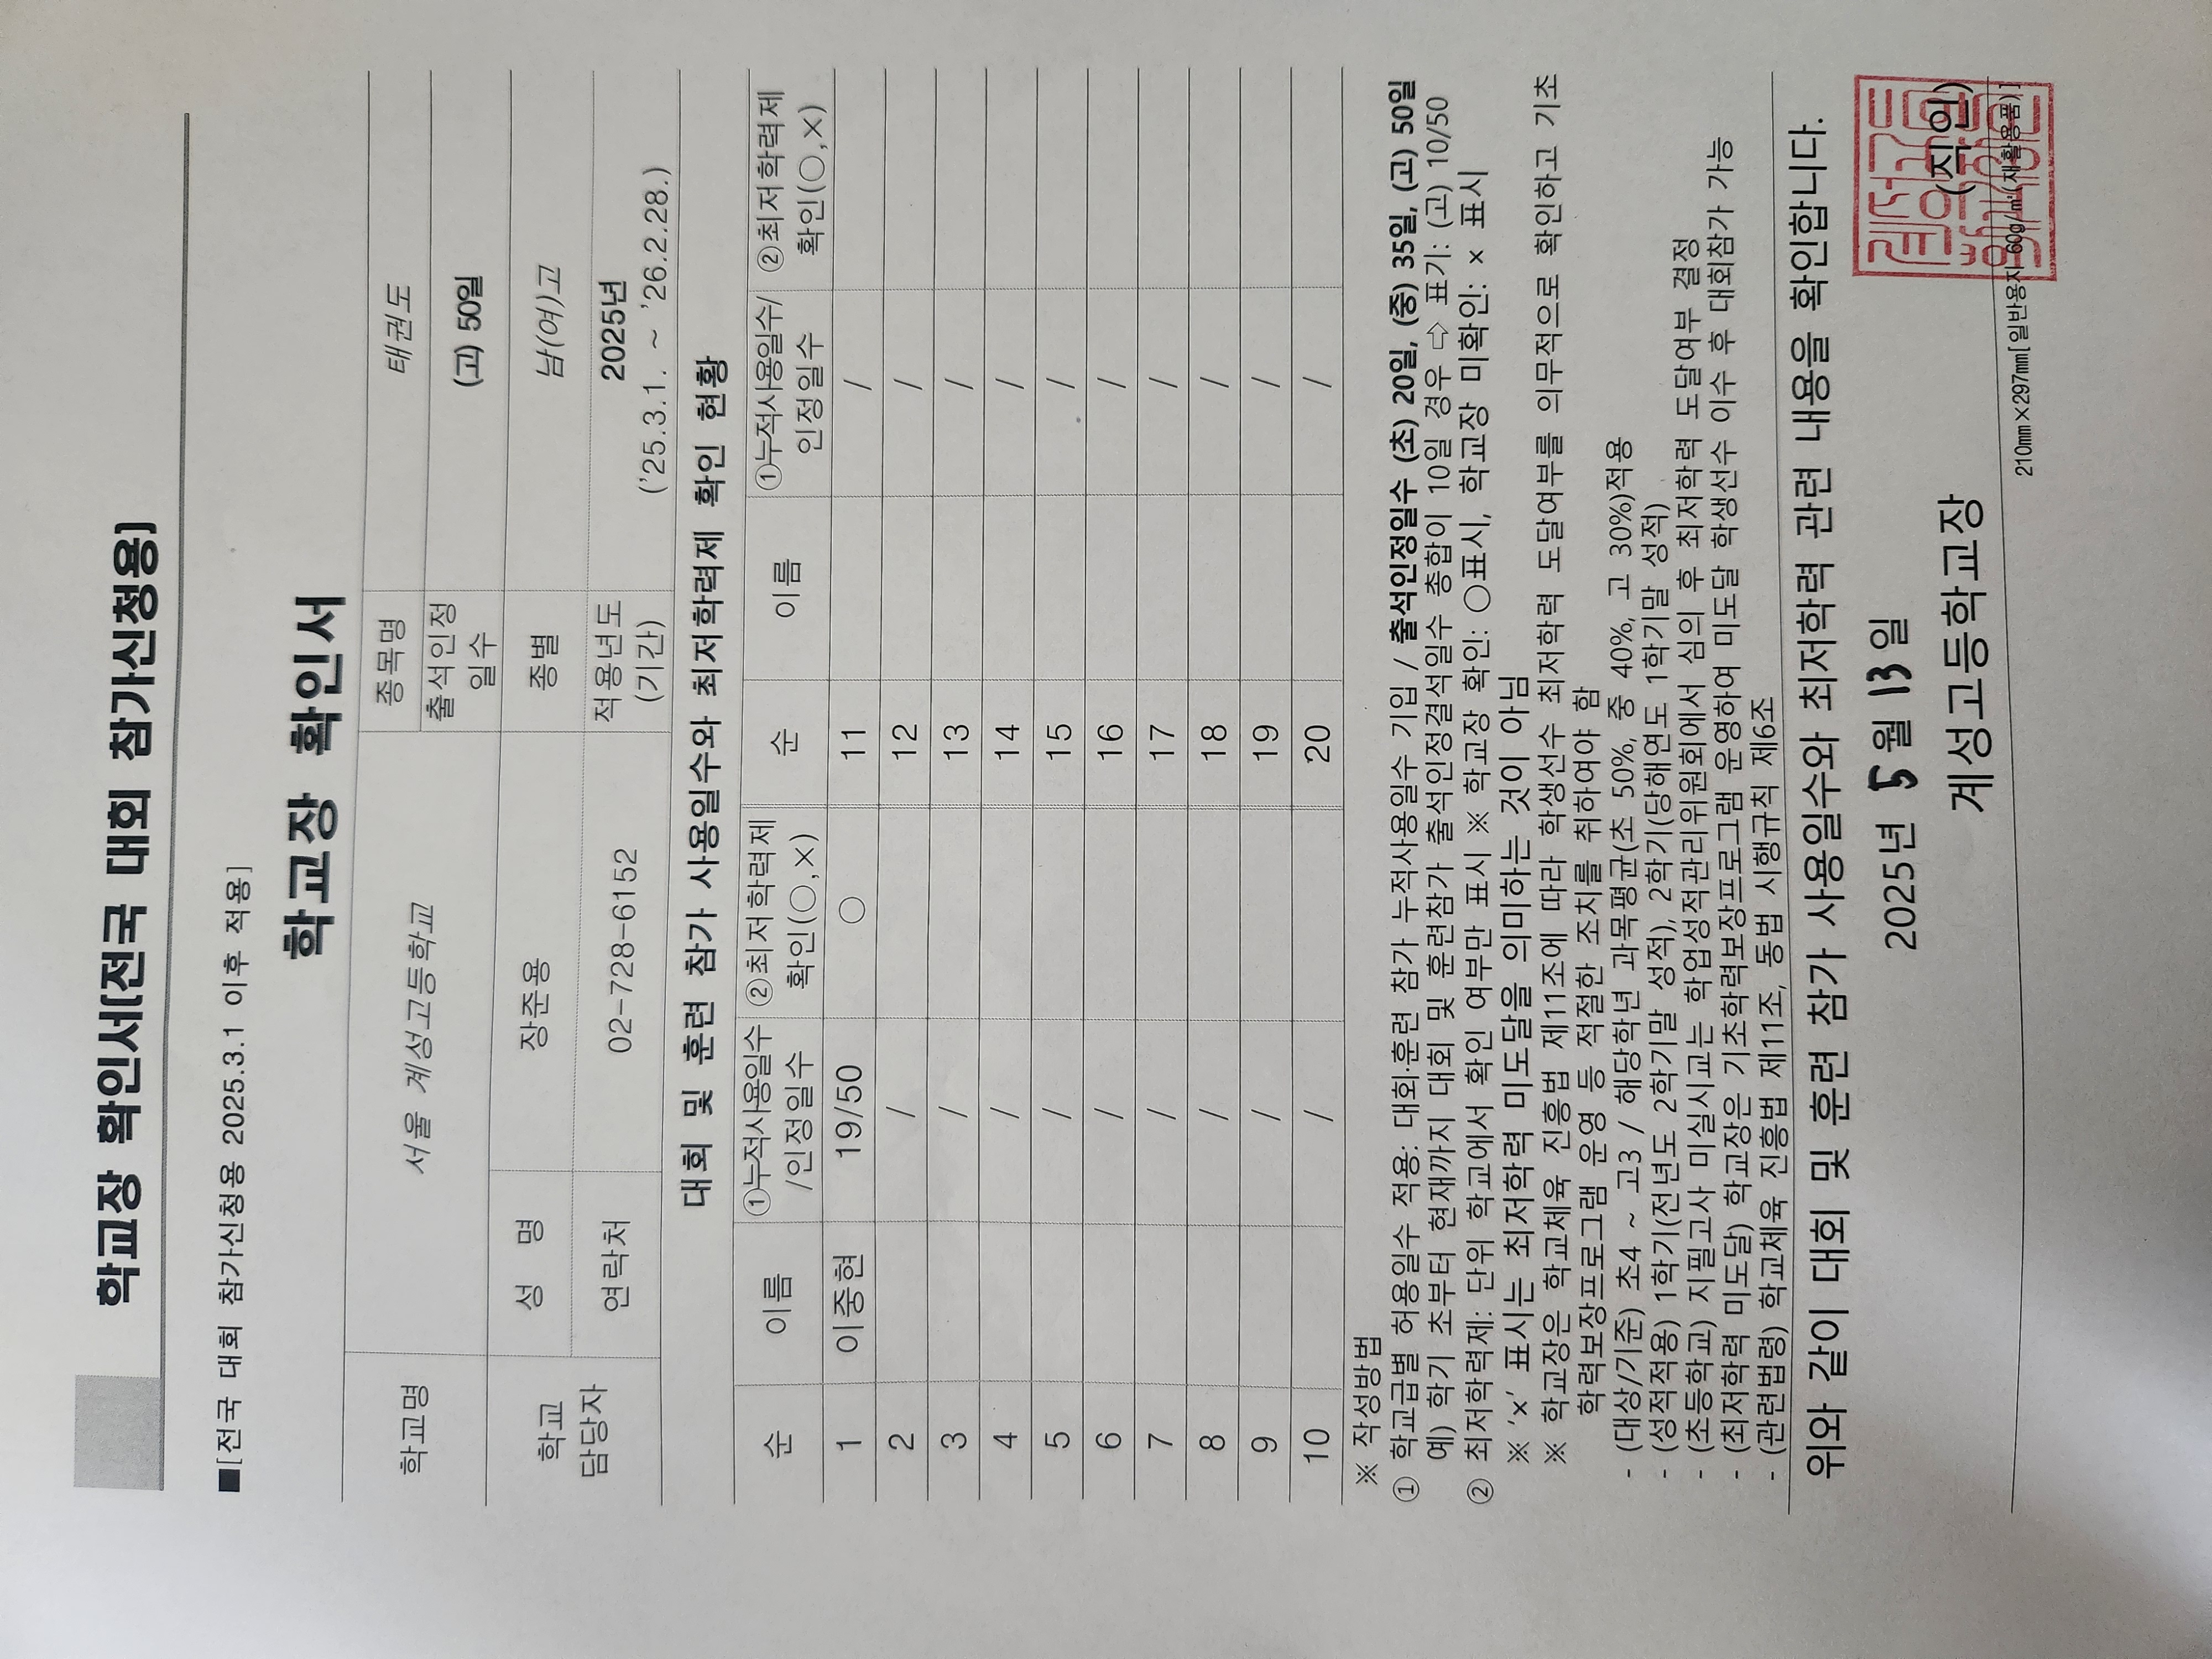 학교장 확인서[전국 대회 참가신청용]
■[전국 대회 참가신청용 2025.3.1 이후 적용]
학교장 확인서
학교명 서울 계성고등학교 종목명 태권도
출석인정 일수 (고) 50일
학교 담당자 성 명 장준용 종별 남(여)고
연락처 02-728-6152 적용년도 (기간) 2025년 ('25.3.1. ~ '26.2.28.)
대회 및 훈련 참가 사용일수와 최저학력제 확인 현황
순 이름 ①누적사용일수/인정일수 ②최저학력제 확인(○,×) 순 이름 ①누적사용일수/인정일수 ②최저학력제 확인(○,×)
1 이중현 19/50 ○ 11 /
2 / 12 /
3 / 13 /
4 / 14 /
5 / 15 /
6 / 16 /
7 / 17 /
8 / 18 /
9 / 19 /
10 / 20 /
※ 작성방법
① 학교급별 허용일수 적용: 대회·훈련 참가 누적사용일수 기입 / 출석인정일수 (초) 20일, (중) 35일, (고) 50일
예) 학기 초부터 현재까지 대회 및 훈련참가 출석인정결석일수 총합이 10일 경우 ⇨ 표기: (고) 10/50
② 최저학력제: 단위 학교에서 확인 여부만 표시 ※ 학교장 확인: ○표시, 학교장 미확인: × 표시
※ '×' 표시는 최저학력 미도달을 의미하는 것이 아님
※ 학교장은 학교체육 진흥법 제11조에 따라 학생선수 최저학력 도달여부를 의무적으로 확인하고 기초
학력보장프로그램 운영 등 적절한 조치를 취하여야 함
- (대상/기준) 초4 ~ 고3 / 해당학년 과목평균(초 50%, 중 40%, 고 30%)적용
- (성적적용) 1학기(전년도 2학기말 성적), 2학기(당해연도 1학기말 성적)
- (초등학교) 지필고사 미실시교는 학업성적관리위원회에서 심의 후 최저학력 도달여부 결정
- (최저학력 미도달) 학교장은 기초학력보장프로그램 운영하여 미도달 학생선수 이수 후 대회참가 가능
- (관련법령) 학교체육 진흥법 제11조, 동법 시행규칙 제6조
위와 같이 대회 및 훈련 참가 사용일수와 최저학력 관련 내용을 확인합니다.
2025년 5월 13일
계성고등학교장 (직인)
210㎜×297㎜[일반용지 60g/㎡(재활용품)]